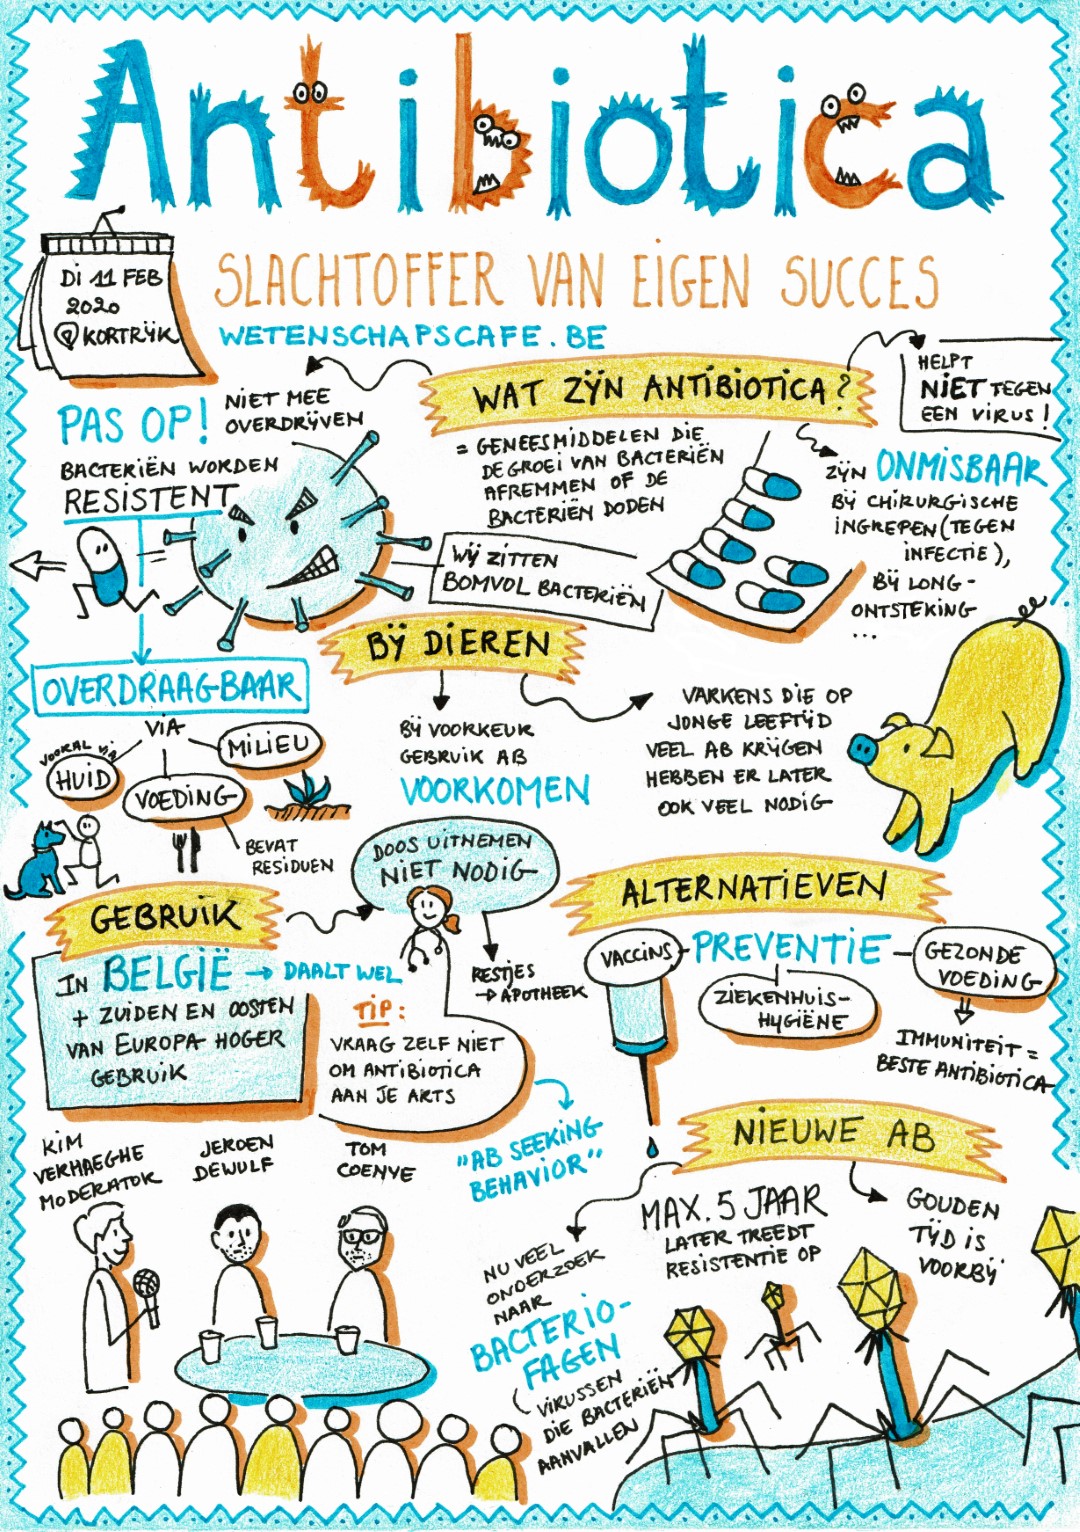 Antibiotica
DI 11 FEB
2020
KORTRIJK
SLACHTOFFER VAN EIGEN SUCCES
WETENSCHAPSCAFE.BE
WAT ZIJN ANTIBIOTICA?
HELPT
NIET TEGEN
EEN VIRUS!
PAS OP!
NIET MEE
OVERDRIJVEN
BACTERIËN WORDEN
RESISTENT
= GENEESMIDDELEN DIE
DE GROEI VAN BACTERIËN
AFREMMEN OF DE
BACTERIËN DODEN
ZIJN ONMISBAAR
BIJ CHIRURGISCHE
INGREPEN (TEGEN
INFECTIE),
BIJ LONG-
ONTSTEKING
...
WIJ ZITTEN
BOMVOL BACTERIËN
OVERDRAAGBAAR
VIA
VOORAL VIA
HUID
VOEDING
MILIEU
BEVAT
RESIDUEN
BIJ DIEREN
BIJ VOORKEUR
GEBRUIK AB
VOORKOMEN
VARKENS DIE OP
JONGE LEEFTIJD
VEEL AB KRIJGEN
HEBBEN ER LATER
OOK VEEL NODIG
GEBRUIK
DOOS UITNEMEN
NIET NODIG
RESTJES
→ APOTHEEK
IN BELGIË → DAALT WEL
+ ZUIDEN EN OOSTEN
VAN EUROPA HOGER
GEBRUIK
TIP:
VRAAG ZELF NIET
OM ANTIBIOTICA
AAN JE ARTS
"AB SEEKING
BEHAVIOR"
ALTERNATIEVEN
VACCINS
PREVENTIE
GEZONDE
VOEDING
ZIEKENHUIS-
HYGIËNE
IMMUNITEIT =
BESTE ANTIBIOTICA
NIEUWE AB
MAX. 5 JAAR
LATER TREEDT
RESISTENTIE OP
GOUDEN
TIJD IS
VOORBIJ
NU VEEL
ONDERZOEK
NAAR
BACTERIO-
FAGEN
VIRUSSEN
DIE BACTERIËN
AANVALLEN
KIM
VERHAEGHE
MODERATOR
JEROEN
DEWULF
TOM
COENYE